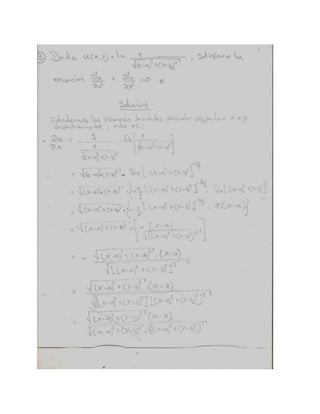 ③ Dentro u(x,y) = ln 1/√((x-a)²+(y-b)²), satisface la
ecuación ∂²u/∂x² + ∂²u/∂y² = 0
Solución.
Calculemos las primeras derivadas parciales respecto a x e y
respectivamente, esto es:
• ∂u/∂x = 1/(1/√((x-a)²+(y-b)²)) · Dx[1/√((x-a)²+(y-b)²)]
= √((x-a)²+(y-b)²) · Dx[(x-a)²+(y-b)²]^(-1/2)
= √((x-a)²+(y-b)²) · {-1/2[(x-a)²+(y-b)²]^(-3/2) · Dx[(x-a)²+(y-b)²]}
= √((x-a)²+(y-b)²) · {-1/2[(x-a)²+(y-b)²]^(-3/2) · 2(x-a)}
= √((x-a)²+(y-b)²) · {-(x-a)/√([(x-a)²+(y-b)²]³)}
= - √((x-a)²+(y-b)²) · (x-a)/√([(x-a)²+(y-b)²]³)
= √((x-a)²+(y-b)²) · (a-x)/√([(x-a)²+(y-b)²][(x-a)²+(y-b)²]²)
= √((x-a)²+(y-b)²) (a-x)/(√((x-a)²+(y-b)²) · √([(x-a)²+(y-b)²]²))